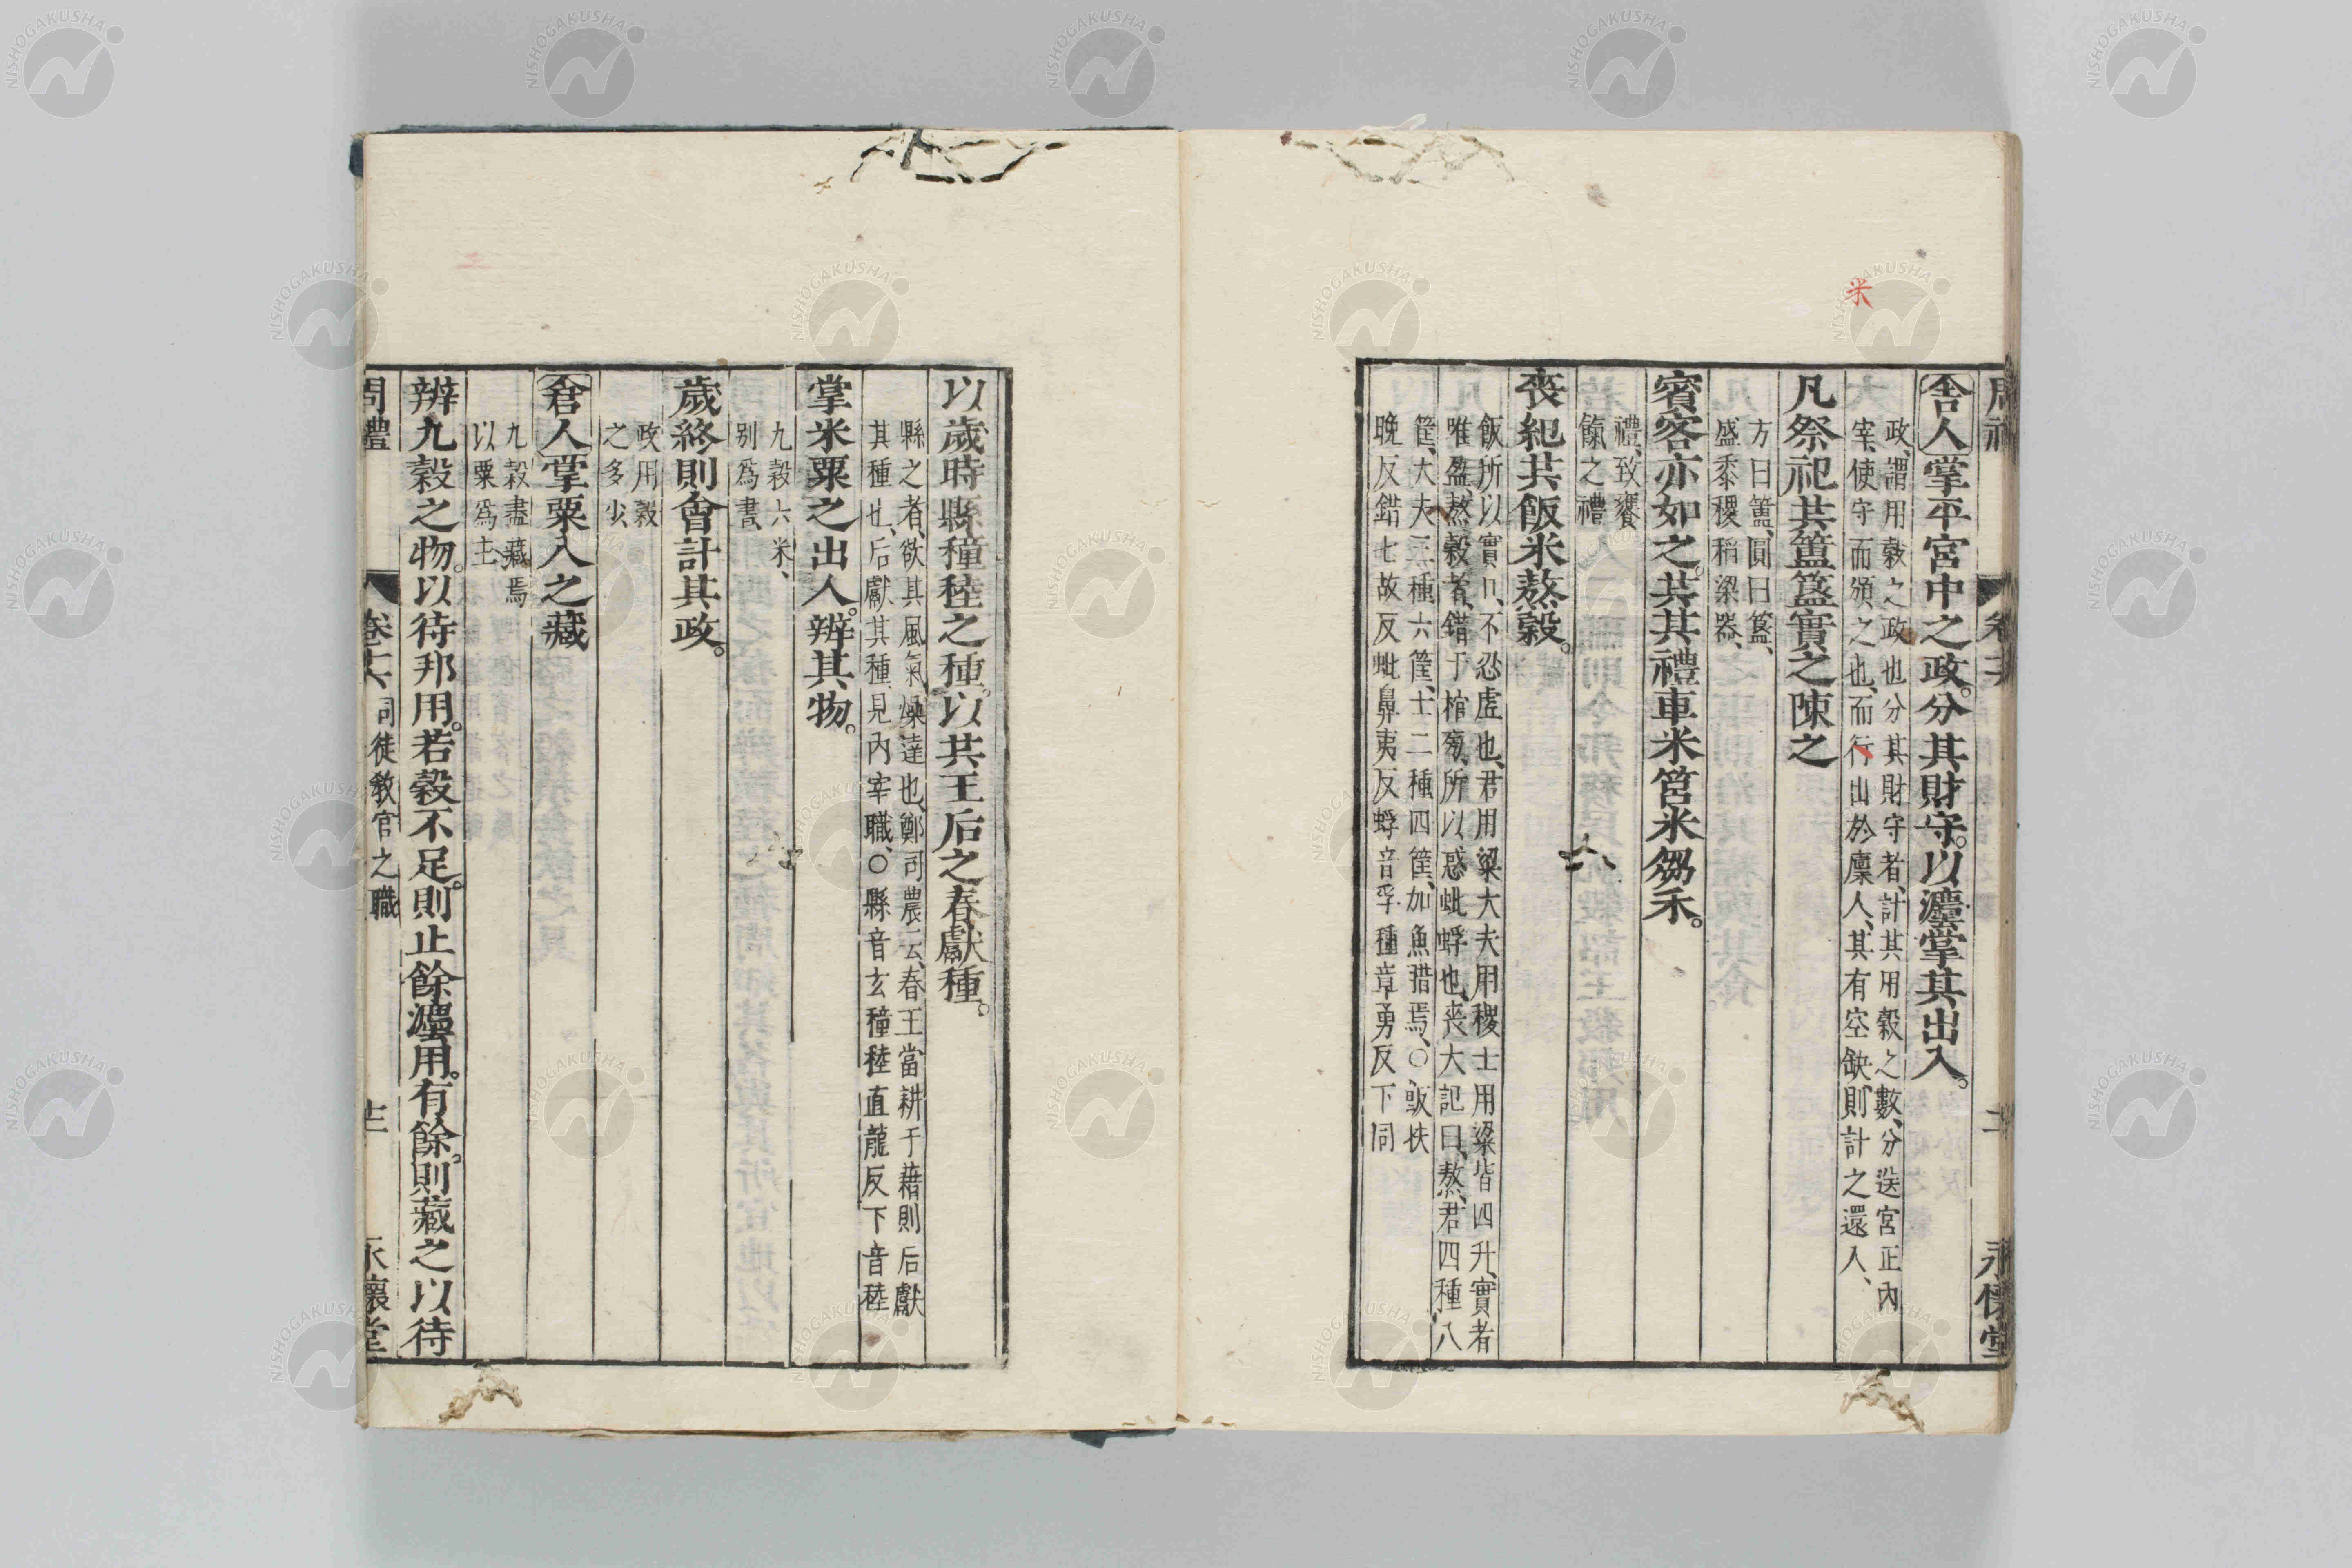 米
周禮
卷六
永懷堂
舍人掌平宮中之政。分其財守。以灋掌其出入。
政、謂用穀之政也分其財守者、計其用穀之數、分送宮正內
宰、使守而頒之也、而行出於廩人、其有空缺、則計之還入、
凡祭祀共簠簋實之陳之
方曰簠、圓曰簋、
盛黍稷稻粱器、
賓客亦如之。共其禮車米筥米芻禾。
禮、致饔
餼之禮
喪紀共飯米熬穀。
飯所以實口、不忍虛也、君用粱大夫用稷士用粱皆四升、實者
唯盈、熬穀者、錯于棺旁、所以惑蚍蜉也、喪大記曰、熬、君四種、八
筐、大夫三種、六筐、士二種四筐、加魚腊焉、○飯扶
晚反錯七故反蚍鼻夷反蜉音孚種章勇反下同
以歲時縣穜稑之種。以共王后之春獻種。
縣之者、欲其風氣、燥達也、鄭司農云、春王當耕于藉則后獻
其種也、后獻其種、見內宰職、○縣音玄穜稑直龍反下音稑
掌米粟之出入。辨其物。
九穀六米、
別爲書、
歲終則會計其政。
政用穀
之多少、
倉人掌粟入之藏
九穀盡藏焉
以粟爲主
辨九穀之物。以待邦用。若穀不足。則止餘灋用。有餘。則藏之以待
周禮
卷六 司徒敎官之職
永懷堂
NISHOGAKUSHA